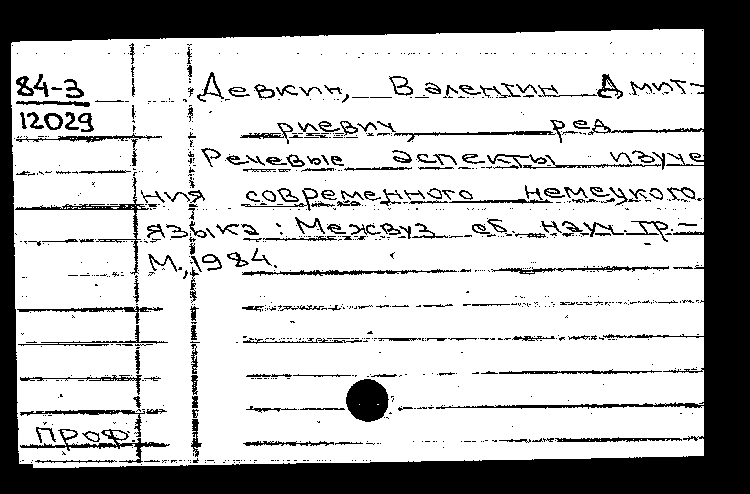 84-3
12029
Девкин, Валентин Дмит-
риевич, ред
Речевые аспекты изуче
ния современного немецкого
языка : Межвуз сб. науч. тр. -
М., 1984.
ПРОФ